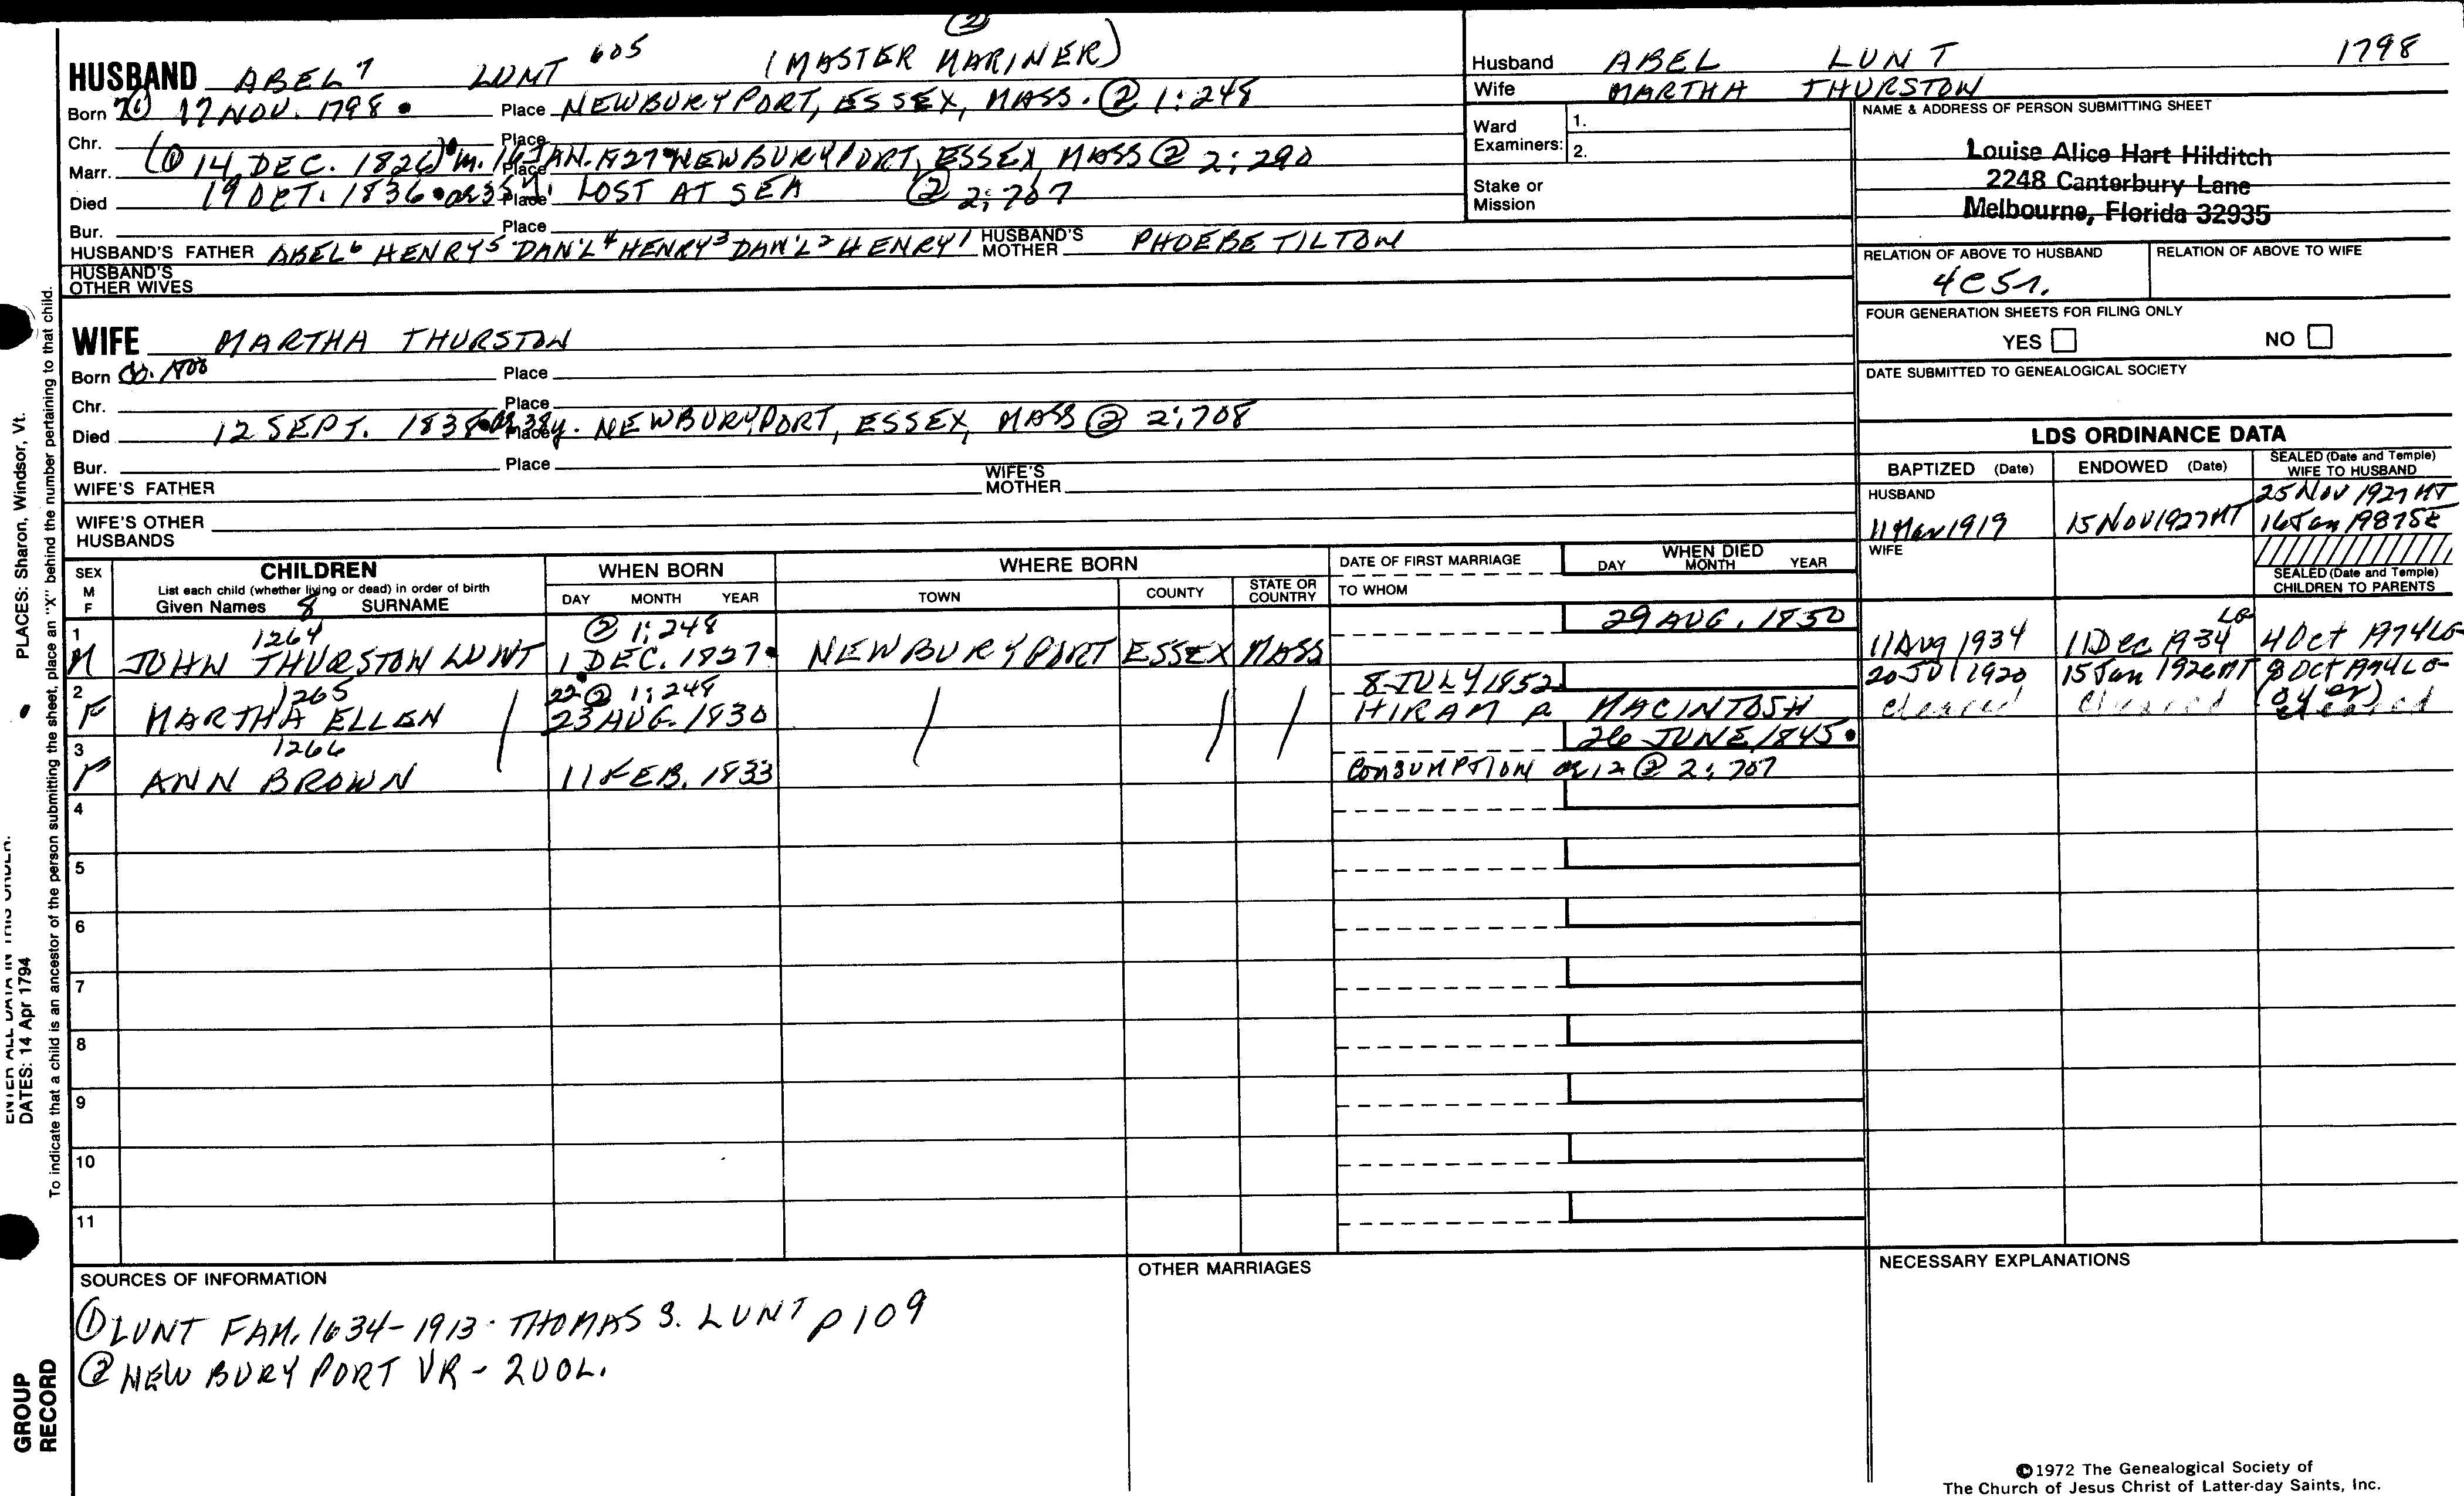 ②
HUSBAND ABEL 7 LUNT 605 (MASTER MARINER)
Born 17 NOV. 1798 Place NEWBURYPORT, ESSEX, MASS. ② 1:248
Chr. Place
Marr. (① 14 DEC. 1826) m. 16 JAN. 1827 Place NEWBURYPORT, ESSEX, MASS ② 2:290
Died 19 OCT. 1836 Place LOST AT SEA ② 2:707
Bur. Place
HUSBAND'S FATHER ABEL 6 HENRY 5 DAN'L 4 HENRY 3 DAN'L 2 HENRY 1 HUSBAND'S MOTHER PHOEBE TILTON
HUSBAND'S OTHER WIVES
WIFE MARTHA THURSTON
Born Place
Chr. Place
Died 12 SEPT. Place NEWBURYPORT, ESSEX, MASS ② 2:708
Bur. Place
WIFE'S FATHER WIFE'S MOTHER
WIFE'S OTHER HUSBANDS
Husband ABEL LUNT 1798
Wife MARTHA THURSTON
Ward Examiners: 1. 2.
Stake or Mission
NAME & ADDRESS OF PERSON SUBMITTING SHEET
Louise Alice Hart Hilditch
2248 Canterbury Lane
Melbourne, Florida 32935
RELATION OF ABOVE TO HUSBAND RELATION OF ABOVE TO WIFE
FOUR GENERATION SHEETS FOR FILING ONLY
YES NO
DATE SUBMITTED TO GENEALOGICAL SOCIETY
LDS ORDINANCE DATA
BAPTIZED (Date) ENDOWED (Date) SEALED (Date and Temple) WIFE TO HUSBAND
HUSBAND 25 Nov 1927
11 Mar 1919 15 NOV 1927 16 Jan
WIFE
SEALED (Date and Temple) CHILDREN TO PARENTS
SEX M F CHILDREN WHEN BORN WHERE BORN DATE OF FIRST MARRIAGE WHEN DIED
List each child (whether living or dead) in order of birth
Given Names 8 SURNAME DAY MONTH YEAR TOWN COUNTY STATE OR COUNTRY TO WHOM DAY MONTH YEAR
1 1264 ② 1:248 29 AUG. 1850
M JOHN THURSTON LUNT 1 DEC. 1827 NEWBURYPORT ESSEX MASS 11 Aug 1934 11 Dec 1934 LG 4 Oct 1974 LG
2 1265 22 ② 1:248 8 JULY 1852 20 Jul 1920 15 Jan 1926 8 Oct 1974 LG
F MARTHA ELLEN 23 AUG. 1830 HIRAM MACINTOSH cleared cleared cleared
3 1266 26 JUNE 1845
F ANN BROWN 11 FEB. 1833 CONSUMPTION 12 ② 2:707
4
5
6
7
8
9
10
11
SOURCES OF INFORMATION OTHER MARRIAGES NECESSARY EXPLANATIONS
① LUNT FAM. 1634-1913 · THOMAS S. LUNT p 109
② NEWBURYPORT VR - 2 VOL.
©1972 The Genealogical Society of
The Church of Jesus Christ of Latter-day Saints, Inc.
PLACES: Sharon, Windsor, Vt.
ENTER ALL DATA IN THIS ORDER.
DATES: 14 Apr 1794
To indicate that a child is an ancestor of the person submitting the sheet, place an "X" behind the number pertaining to that child.
GROUP
RECORD